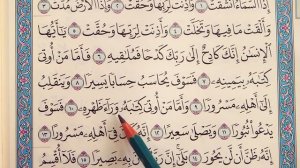 إِذَا ٱلسَّمَآءُ ٱنشَقَّتْ ١ وَأَذِنَتْ لِرَبِّهَا وَحُقَّتْ ٢ وَإِذَا ٱلْأَرْضُ مُدَّتْ ٣
وَأَلْقَتْ مَا فِيهَا وَتَخَلَّتْ ٤ وَأَذِنَتْ لِرَبِّهَا وَحُقَّتْ ٥ يَٰٓأَيُّهَا
ٱلْإِنسَٰنُ إِنَّكَ كَادِحٌ إِلَىٰ رَبِّكَ كَدْحًا فَمُلَٰقِيهِ ٦ فَأَمَّا مَنْ أُوتِيَ
كِتَٰبَهُۥ بِيَمِينِهِۦ ٧ فَسَوْفَ يُحَاسَبُ حِسَابًا يَسِيرًا ٨ وَيَنقَلِبُ
إِلَىٰٓ أَهْلِهِۦ مَسْرُورًا ٩ وَأَمَّا مَنْ أُوتِيَ كِتَٰبَهُۥ وَرَآءَ ظَهْرِهِۦ ١٠ فَسَوْفَ
يَدْعُوا۟ ثُبُورًا ١١ وَيَصْلَىٰ سَعِيرًا ١٢ إِنَّهُۥ كَانَ فِيٓ أَهْلِهِۦ مَسْرُورًا ١٣
إِنَّهُۥ ظَنَّ أَن لَّن يَحُورَ ١٤ بَلَىٰٓ إِنَّ رَبَّهُۥ كَانَ بِهِۦ بَصِيرًا ١٥ فَلَآ أُقْسِمُ